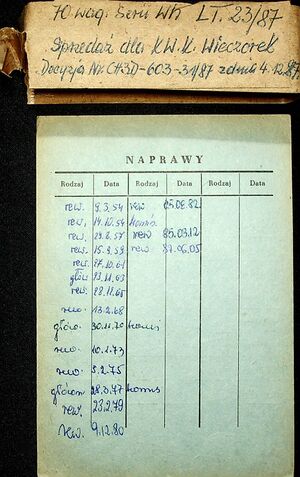 10 wag. Serii Wh LT. 23/87
Sprzedaż dla K.W.K. Wieczorek
Decyzja Nr. CH3D-603-31/87 z dnia 4.12.87
NAPRAWY
Rodzaj Data Rodzaj Data Rodzaj Data
rew. 9.3.54 rew 05.08.82
rew. 14.10.54
rew. 85.03.12
rew. 15.9.59 rew 87.06.05
rew. 27.10.61
główn 23.11.63
rew. 28.11.65
rew. 13.2.68
główn 30.11.70
rew 10.2.73
rew 5.2.75
główna 28.3.77
rew. 23.2.79
rew. 9.12.80